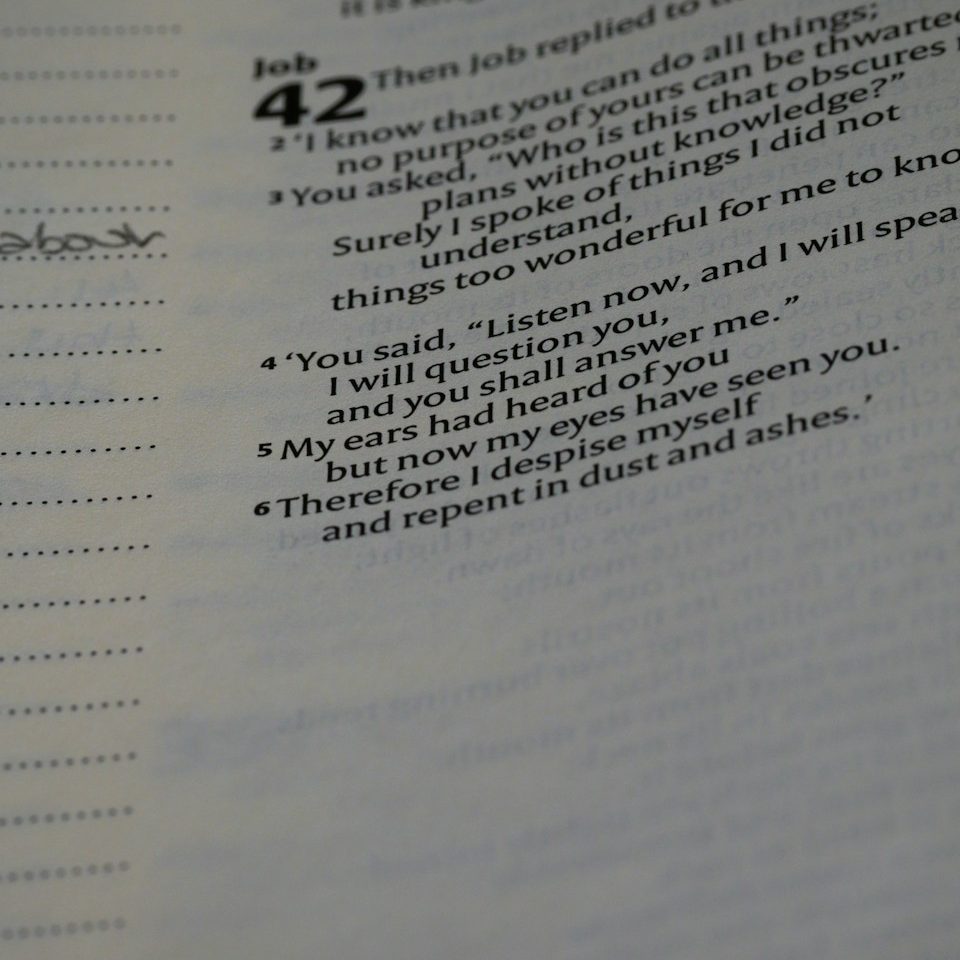 Job
42 Then Job replied to
2 ‘I know that you can do all things;
no purpose of yours can be thwarted
3 You asked, “Who is this that obscures
plans without knowledge?”
Surely I spoke of things I did not
understand,
things too wonderful for me to kno
4 ‘You said, “Listen now, and I will spea
I will question you,
and you shall answer me.”
5 My ears had heard of you
but now my eyes have seen you.
6 Therefore I despise myself
and repent in dust and ashes.’
about